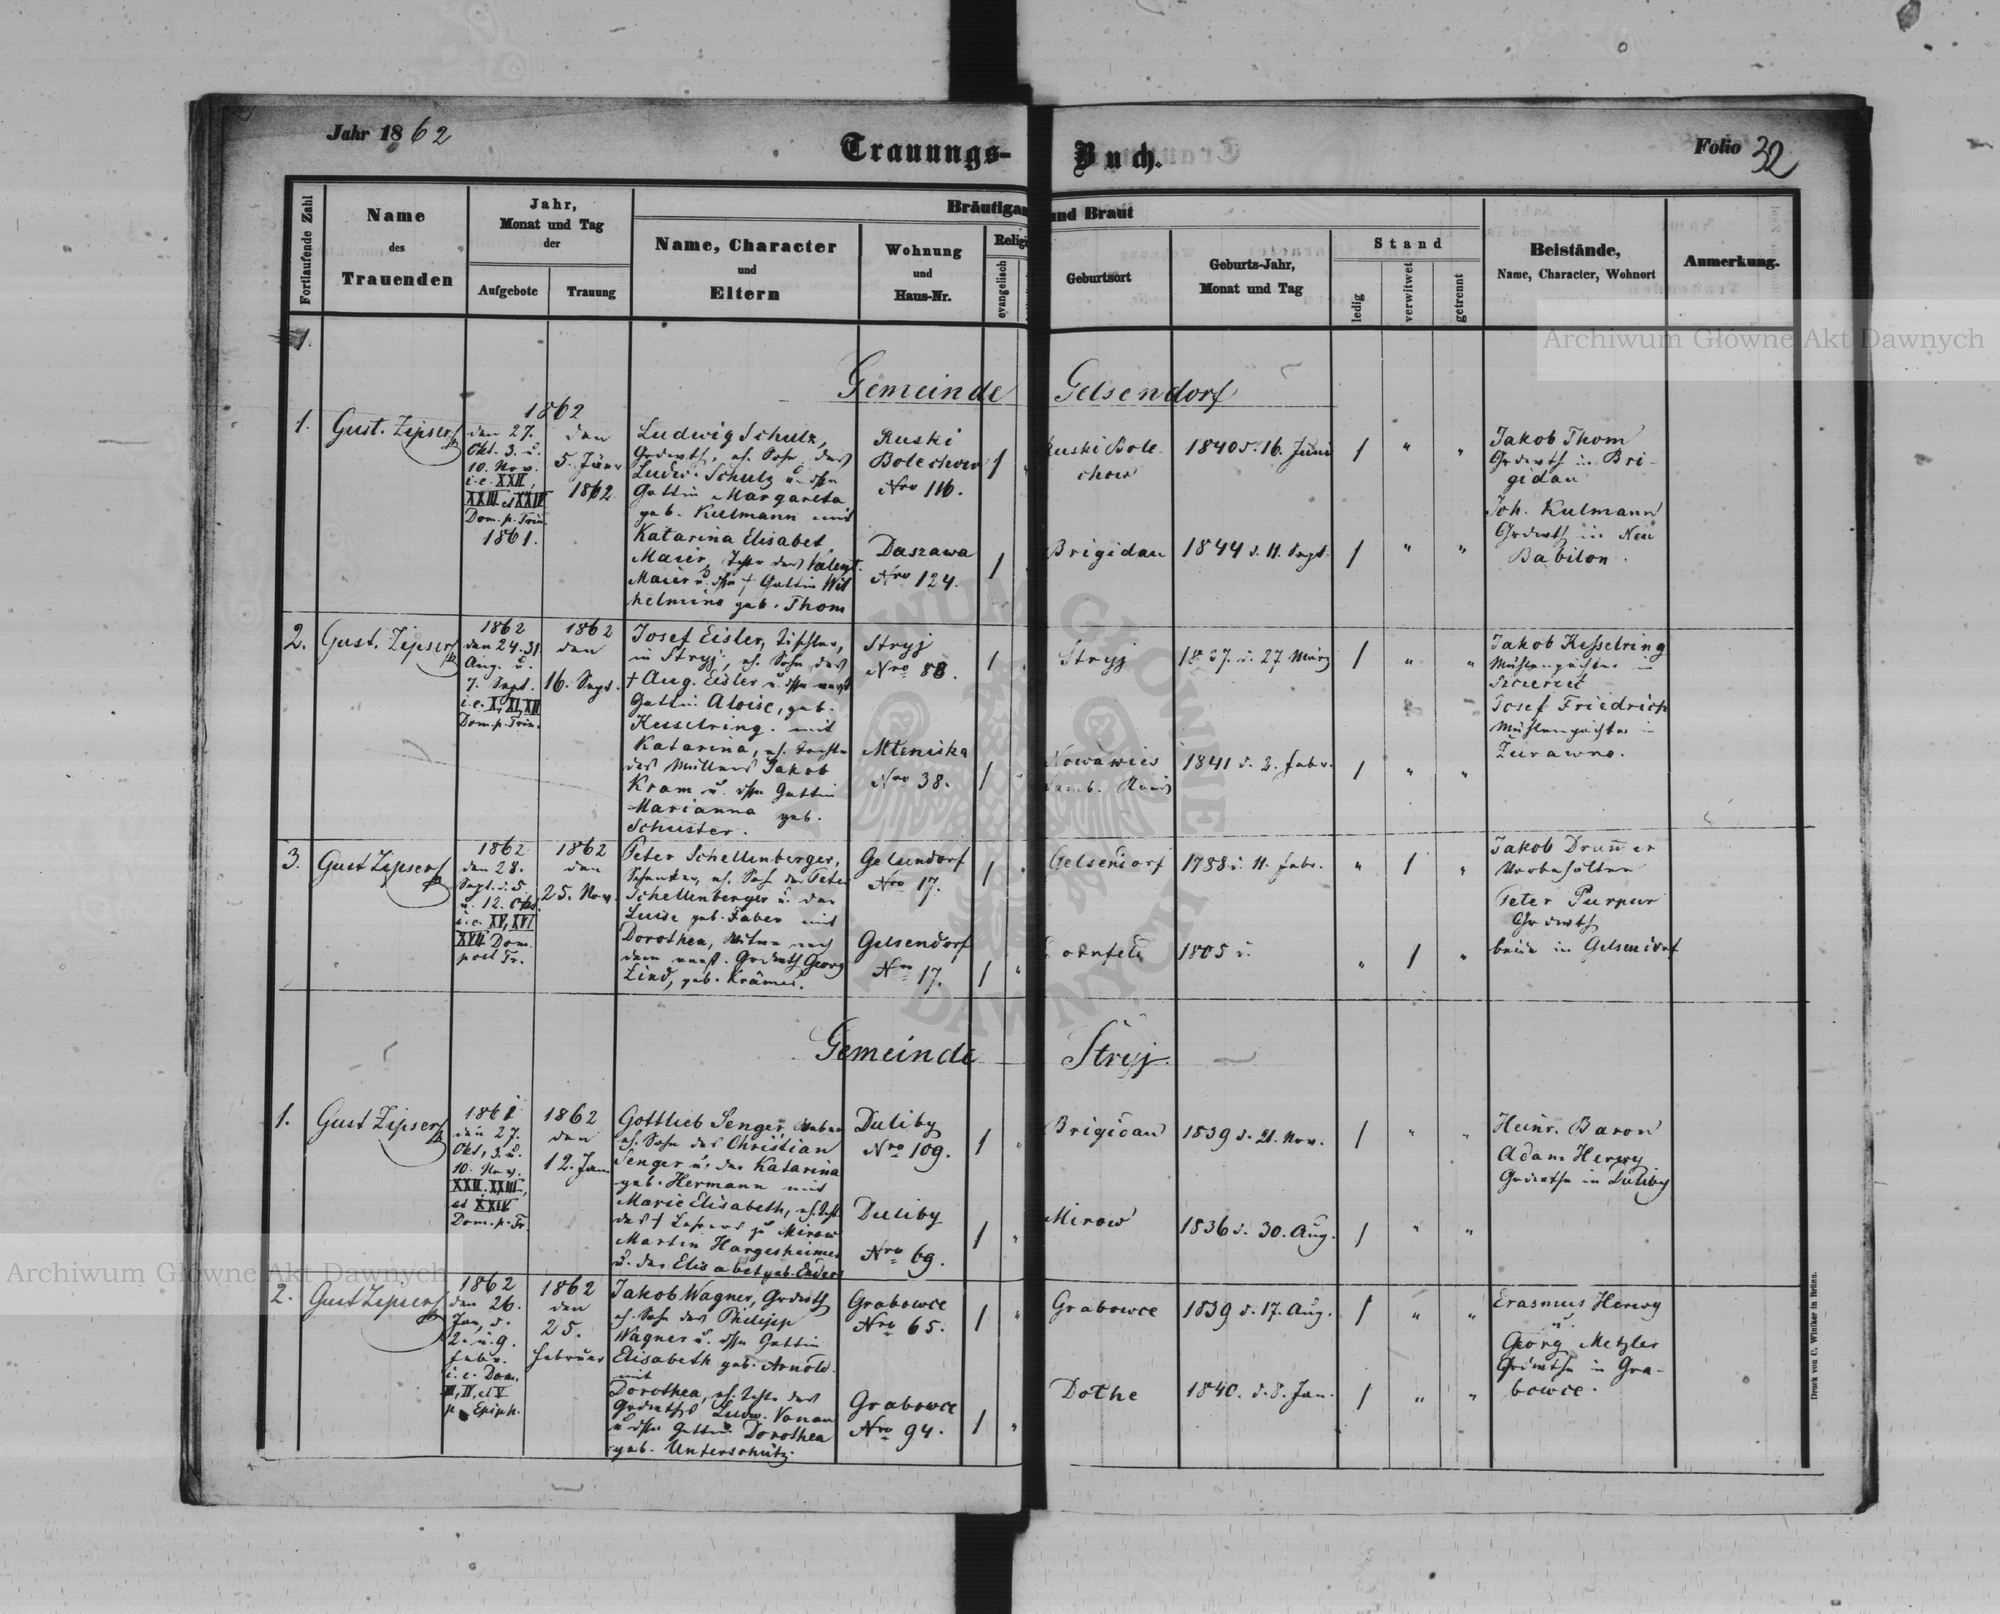 Jahr 1862
Trauungs-Buch.
Folio 32
Fortlaufende Zahl
Name
des
Trauenden
Jahr,
Monat und Tag
der
Aufgebote
Trauung
Bräutigam
und Braut
Name, Character
und
Eltern
Wohnung
und
Haus-Nr.
Religi
evangelisch
Geburtsort
Geburts-Jahr,
Monat und Tag
Stand
ledig
verwitwet
getrennt
Beistände,
Name, Character, Wohnort
Anmerkung.
Gemeinde Gelsendorf
1.
Gust. Zipser
1862
den 27.
Okt. 3. u.
10. Nov.
i. e. XXII,
XXIII et XXIV
Dom. p. Trin.
1861.
den
5. Jäner
1862
Ludwig Schulz,
Grdwth, eh. Sohn des
Ludw. Schulz u. dssn
Gattin Margareta
geb. Kulmann mit
Katarina Elisabet
Maier, Tchtr des Valent.
Maier u. dssn † Gattin Wil
helmine geb. Thom
Ruski
Bolechow
Nro 116.
Daszawa
Nro 124.
1
1
Ruski Bole
chow
Brigidau
1840 d. 16. Juni
1844 d. 11. Sept.
1 " "
1 " "
Jakob Thom
Grdwth in Bri-
gidau
Joh. Kulmann
Grdwth in Neu
Babilon.
2.
Gust. Zipser
1862
den 24. 31
Aug. u.
7. Sept.
i. e. X, XI, XII
Dom. p. Trin.
1862
den
16. Sept.
Josef Eisler, Tischler,
in Stryj, eh. Sohn des
† Aug. Eisler u. dssn
Gattin Aloise, geb.
Kesselring. mit
Katarina, eh. Tochter
des Müllers Jakob
Kram u. dssn Gattin
Marianna geb.
Schuster.
Stryj
Nro 88.
Mteniska
Nro 38.
1
1
Stryj
Nowawies
1837. d. 27 März
1841 d. 2. Febr.
1 " "
1 " "
Jakob Kesselring
Mühlenpächter in
Josef Friedrich
Mühlenpächter in
Zurawno.
3.
Gust Zipser
1862
den 28.
Sept. d. 5
u. 12. Okt.
i. e. XV, XVI
XVII Dom.
post Tr.
1862
den
25. Nov.
Peter Schellenberger,
Schenker, eh. Sohn des Peter
Schellenberger u. der
Luise geb. Faber mit
Dorothea, Witwe nach
dem verst. Grdwth Georg
Lind, geb. Krämer.
Gelsendorf
Nro 17.
Gelsendorf
Nro 17.
1
1
Gelsendorf
Dornfeld
1788 d. 11. Febr.
1805 d.
" 1 "
" 1 "
Jakob Drum̅er
Vorbehälter
Peter Purpur
Grdwth
beide in Gelsendorf
Gemeinde Stryj.
1.
Gust Zipser
1861
den 27.
Okt., 3. u.
10. Nov.
XXII. XXIII,
et XXIV
Dom. p. Tr.
1862
den
12. Jan
Gottlieb Senger, Weber
eh. Sohn des Christian
Senger u. der Katarina
geb. Hermann mit
Marie Elisabeth, eh. Tcht
des † Lehrers zu Mirow
Martin Hargesheimer
u. der Elisabet geb. Enders
Duliby
Nro 109.
Duliby
Nro 69.
1
1
Brigidau
Mirow
1839 d. 21. Nov.
1836 d. 30. Aug.
1 " "
1 " "
Heinr. Baron
Adam Herwy
Grdwthe in Duliby
2.
Gust Zipser
1862
den 26.
Jan, d.
2. u. 9.
Febr.
i. e. Dom.
III, IV, et V
p. Epiph.
1862
den
25.
Februar
Jakob Wagner, Grdwth
eh. Sohn des Philipp
Wagner u. dssn Gattin
Elisabeth geb. Arnold.
mit
Dorothea, eh. Tchtr des
Grdwths Ludw. Vonau
u. dssn Gattin Dorothea
geb. Unterschütz.
Grabowce
Nro 65.
Grabowce
Nro 94.
1
1
Grabowce
Dothe
1839 d. 17. Aug.
1840. d. 8. Jan.
1 " "
1 " "
Erasmus Herwy
u.
Georg Metzler
Grdwthe in Gra-
bowce.
Druck von C. Winiker in Brünn.
Archiwum Główne Akt Dawnych
Archiwum Główne Akt Dawnych